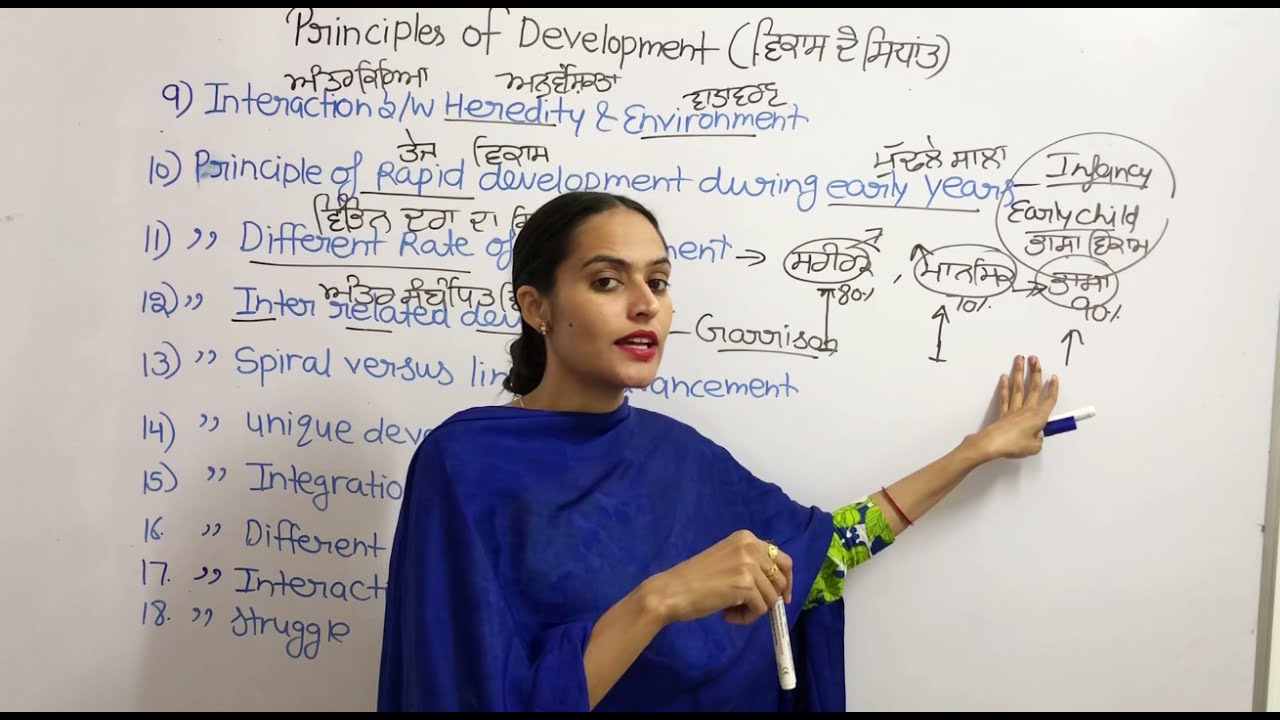 Principles of Development (ਵਿਕਾਸ ਦੇ ਸਿਧਾਂਤ)
ਅੰਤਰਕਿਰਿਆ ਅਨੁਵੰਸ਼ਕਤਾ ਵਾਤਾਵਰਣ
9) Interaction b/w Heredity & Environment
ਤੇਜ ਵਿਕਾਸ ਮੁੱਢਲੇ ਸਾਲਾ
10) Principle of Rapid development during early years - Infancy
Early child
ਭਾਸਾ ਵਿਕਾਸ
ਵਿਭਿੰਨ ਦਰ ਦਾ
11) ,, Different Rate of → ਸਰੀਰਕ, ਮਾਨਸਿਕ → ਭਾਸਾ
80% 70% 90%
ਅੰਤਰ ਸੰਬੰਧਿਤ
12) ,, Inter related - Garrison
13) ,, Spiral versus
14) ,, unique
15) ,, 
16. ,, Different
17. ,, 
18. ,, Struggle